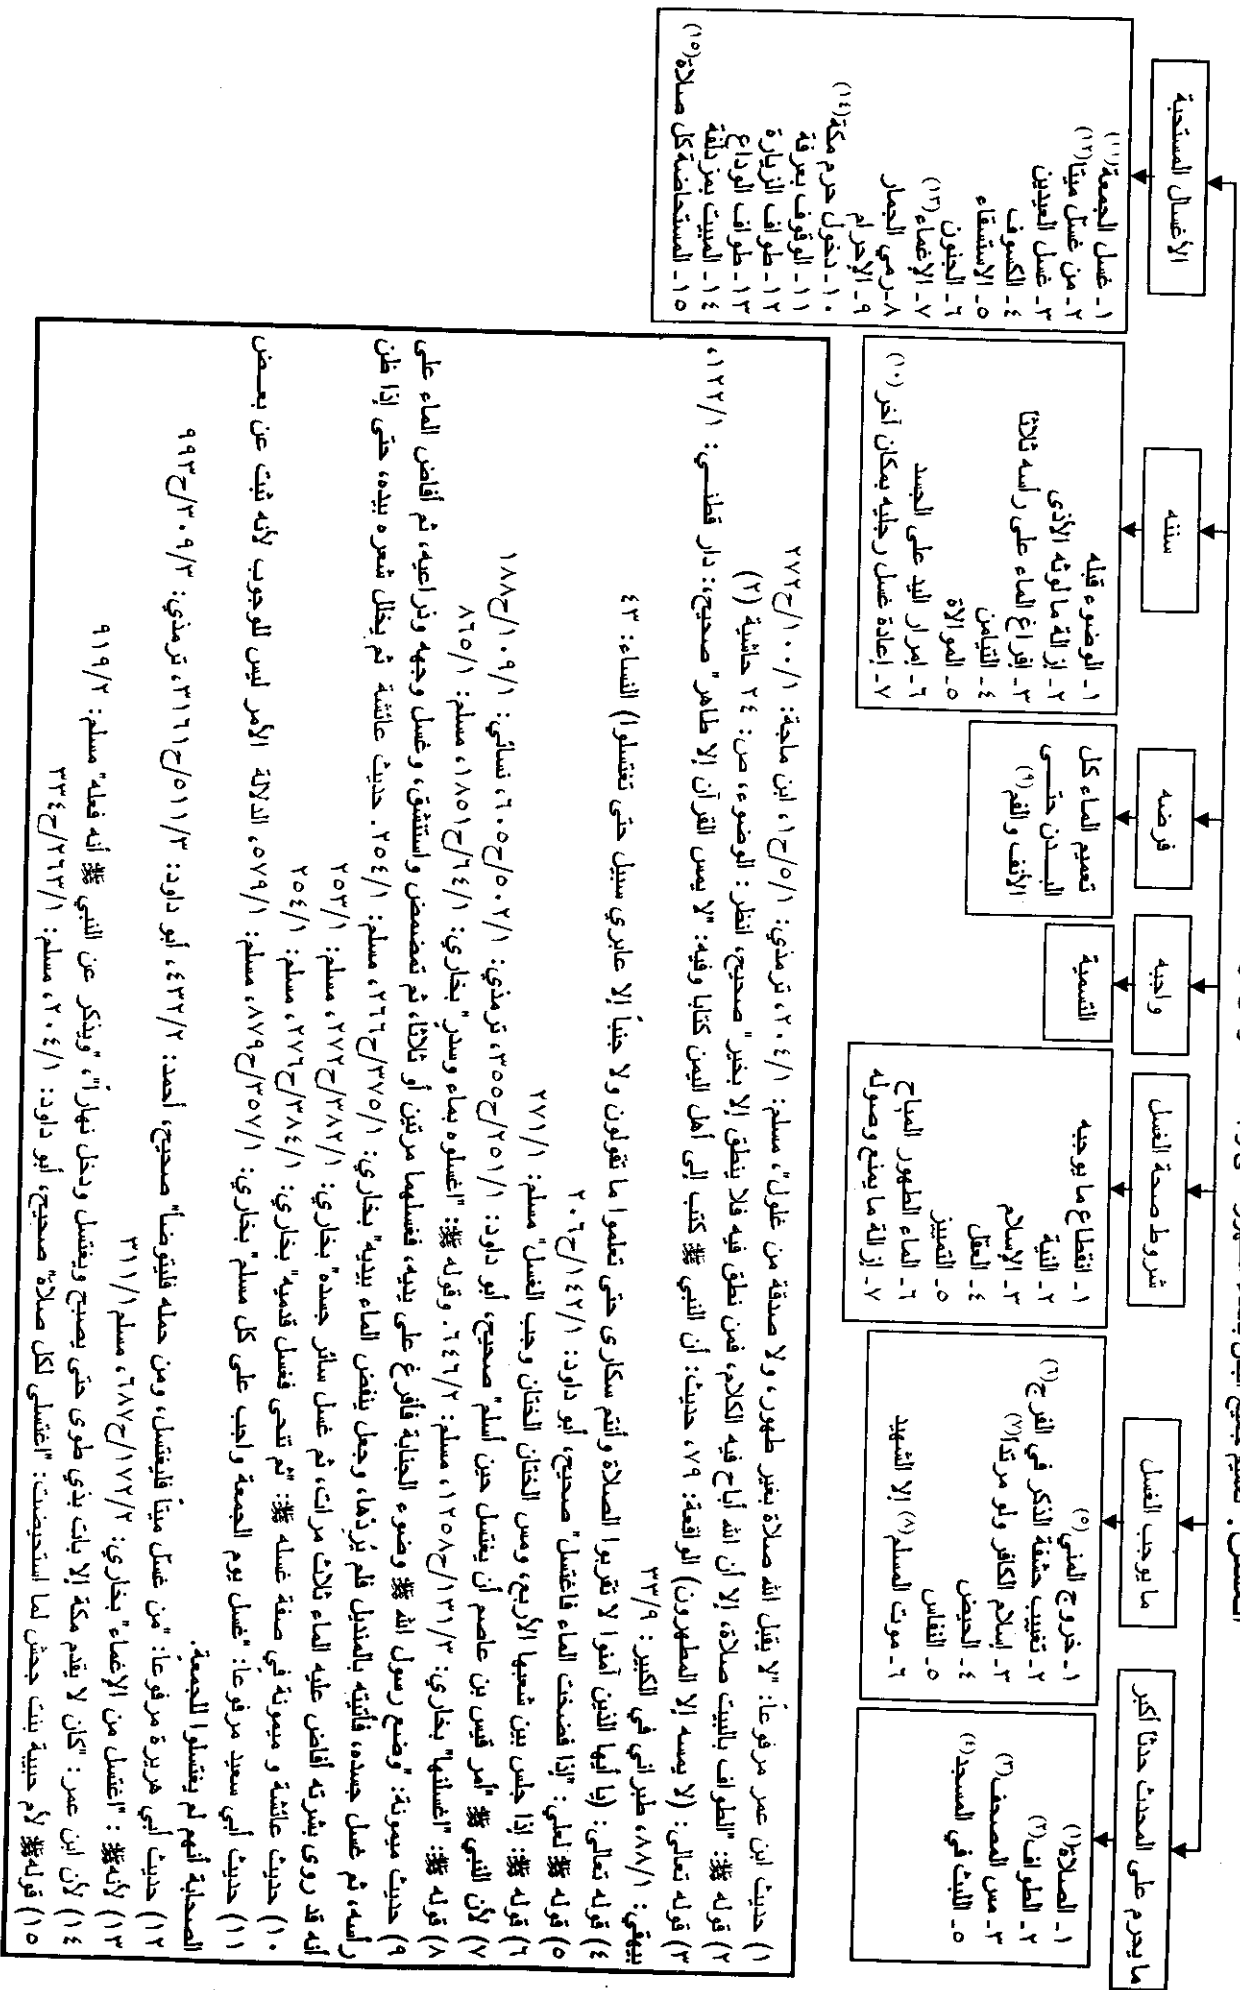 ما يحرم على المحدث حدثًا أكبر
١- الصلاة(١)
٢- الطواف(٢)
٣- مس المصحف(٣)
٥- اللبث في المسجد(٤)
ما يوجب الغسل
١- خروج المني(٥)
٢- تغييب حشفة الذكر في الفرج(٦)
٣- إسلام الكافر ولو مرتدًا(٧)
٤- الحيض
٥- النفاس
٦- موت المسلم(٨) إلا الشهيد
شروط صحة الغسل
١- انقطاع ما يوجبه
٢- النية
٣- الإسلام
٤- العقل
٥- التمييز
٦- الماء الطهور المباح
٧- إزالة ما يمنع وصوله
واجبه
التسمية
فرضه
تعميم الماء كل
البـــدن حتـــى
الأنف والفم(٩)
سننه
١- الوضوء قبله
٢- إزالة ما لوثه الأذى
٣- إفراغ الماء على رأسه ثلاثًا
٤- التيامن
٥- الموالاة
٦- إمرار اليد على الجسد
٧- إعادة غسل رجليه بمكان آخر(١٠)
الأغسال المستحبة
١- غسل الجمعة(١١)
٢- من غسّل ميتًا(١٢)
٣- غسل العيدين
٤- الكسوف
٥- الاستسقاء
٦- الجنون
٧- الإغماء(١٣)
٨- رمي الجمار
٩- الإحرام
١٠- دخول حرم مكة(١٤)
١١- الوقوف بعرفة
١٢- طواف الزيارة
١٣- طواف الوداع
١٤- المبيت بمزدلفة
١٥- المستحاضة كل صلاة(١٥)
١) حديث ابن عمر مرفوعاً: "لا يقبل الله صلاة بغير طهور، ولا صدقة من غلول"، مسلم: ٢٠٤/١، ترمذي: ٥/١/ح١، ابن ماجة: ١٠٠/١/ح٢٧٢
٢) قوله ﷺ: "الطواف بالبيت صلاة، إلا أن الله أباح فيه الكلام، فمن نطق فيه فلا ينطق إلا بخير" صحيح، انظر: الوضوء، ص: ٢٤ حاشية (٢)
٣) قوله تعالى: (لا يمسه إلا المطهرون) الواقعة: ٧٩، حديث: أن النبي ﷺ كتب إلى أهل اليمن كتابا وفيه: "لا يمس القرآن إلا طاهر" صحيح، دار قطنـــي: ١٢٢/١،
بيهقي: ٨٨/١، طبراني في الكبير: ٣٣/٩
٤) قوله تعالى: (يا أيها الذين آمنوا لا تقربوا الصلاة وأنتم سكارى حتى تعلموا ما تقولون ولا جنباً إلا عابري سبيل حتى تغتسلوا) النساء: ٤٣
٥) قوله ﷺ لعلي: "إذا فضخت الماء فاغتسل" صحيح، أبو داود: ١٤٢/١/ح٢٠٦
٦) قوله ﷺ: إذا جلس بين شعبها الأربع، ومس الختان الختان وجب الغسل" مسلم: ٢٧١/١
٧) لأن النبي ﷺ "أمر قيس بن عاصم أن يغتسل حين أسلم" صحيح، أبو داود: ٢٥١/١/ح٣٥٥، ترمذي: ٥٠٢/١/ح٦٠٥، نسائي: ١٠٩/١/ح١٨٨
٨) قوله ﷺ: "اغسلنها" بخاري: ١٣١/٣/ح١٢٥٨، مسلم: ٦٤٦/٢. وقوله ﷺ: "اغسلوه بماء وسدر" بخاري: ٦٤/١/ح١٨٥١، مسلم: ٨٦٥/١
٩) حديث ميمونة: "وضع رسول الله ﷺ وضوء الجنابة فأفرغ على يديه، فغسلهما مرتين أو ثلاثا، ثم تمضمض واستنشق، وغسل وجهه وذراعيه، ثم أفاض الماء على
رأسه، ثم غسل جسده، فأتيته بالمنديل فلم يُرِدْها، وجعل ينفض الماء بيديه" بخاري: ٣٧٥/١/ح٢٦٦، مسلم: ٢٥٤/١. حديث عائشة ثم يخلل شعره بيده، حتى إذا ظن
أنه قد روى بشرته أفاض عليه الماء ثلاث مرات، ثم غسل سائر جسده" بخاري: ٣٨٢/١/ح٢٧٢، مسلم: ٢٥٣/١
١٠) حديث عائشة و ميمونة في صفة غسله ﷺ: "ثم تنحى فغسل قدميه" بخاري: ٣٨٤/١/ح٢٧٦، مسلم: ٢٥٤/١
١١) حديث أبي سعيد مرفوعا: "غسل يوم الجمعة واجب على كل مسلم" بخاري: ٣٥٧/١/ح٨٧٩، مسلم: ٥٧٩/١، الدلالة الأمر ليس للوجوب لأنه ثبت عن بعـــض
الصحابة أنهم لم يغتسلوا للجمعة.
١٢) حديث أبي هريرة مرفوعا: "من غسّل ميتاً فليغتسل، ومن حمله فليتوضأ" صحيح، أحمد: ٤٣٢/٢، أبو داود: ٥١١/٣/ح٣١٦١، ترمذي: ٣٠٩/٣/ح٩٩٣
١٣) لأنهﷺ: "اغتسل من الإغماء" بخاري: ١٧٢/٢/ح٦٨٧، مسلم ٣١١/١
١٤) لأن ابن عمر: "كان لا يقدم مكة إلا بات بذي طوى حتى يصبح ويغتسل ودخل نهاراً"، "ويذكر عن النبي ﷺ أنه فعله" مسلم: ٩١٩/٢
١٥) قولهﷺ لأم حبيبة بنت جحش لما استحيضت: "اغتسلي لكل صلاة" صحيح، أبو داود: ٢٠٤/١، مسلم: ٢٦٣/١/ح٣٣٤